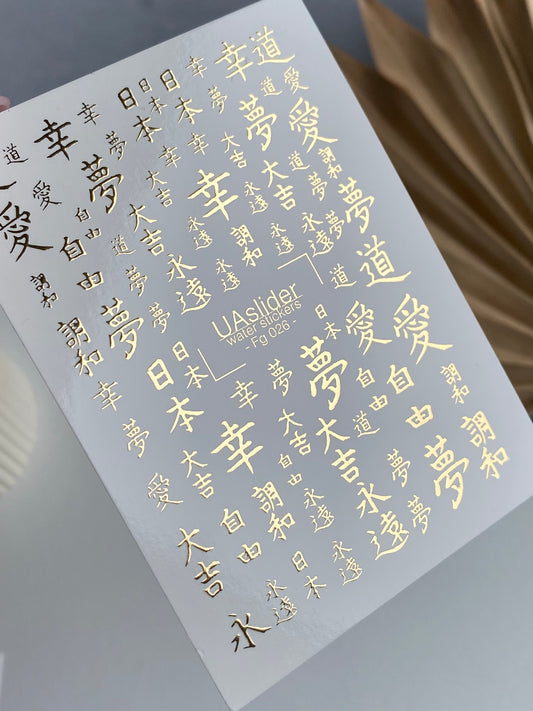 道
幸
愛
日本
日本
幸
幸
道
愛
夢
夢
幸
道
愛
夢
大吉
幸
幸
調和
夢
道
大吉
夢
永遠
夢
大吉
幸
永遠
夢
道
愛
自由
自由
道
大吉
永遠
調和
永遠
永遠
夢
調和
夢
夢
永遠
道
UAslider
water stickers
- Fg 026 -
調和
夢
日本
愛
愛
幸
日本
日本
幸
夢
夢
自由
自由
調和
夢
大吉
幸
大吉
大吉
道
夢
調和
愛
自由
調和
自由
永遠
永遠
夢
夢
大吉
永
永遠
日本
永遠